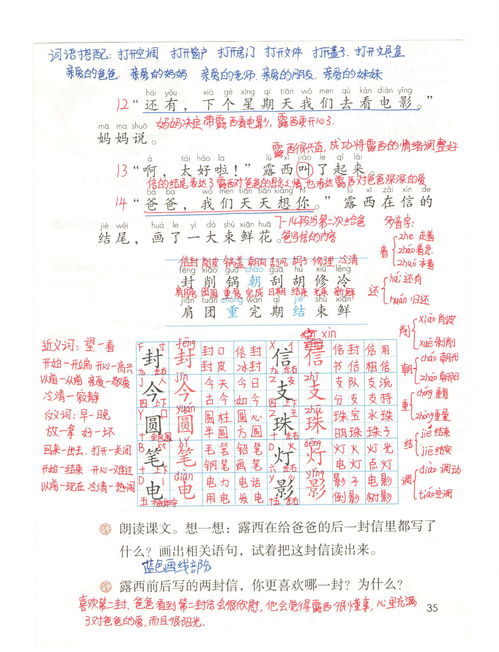 词语搭配：打开空调 打开窗户 打开房门 打开文件 打开盖子 打开文具盒
亲爱的爸爸 亲爱的妈妈 亲爱的老师 亲爱的朋友 亲爱的妹妹
hái yǒu xià gè xīng qī tiān wǒ men qù kàn diàn yǐng
12 “还有，下个星期天我们去看电影。”
妈妈决定带露西看电影，露西要开心了
mā ma shuō
妈妈说。
成功将露西的情绪调整好
13 “啊，太好啦！”露西叫了起来
信的结尾表达了露西对爸爸的思念之情，也表达露西对爸爸深深的爱
bà ba wǒ men tiān tiān xiǎng nǐ
14 “爸爸，我们天天想你。”露西在信的
jié wěi huà le yí dà shù xiān huā
结尾，画了一大束鲜花。
多音字：
着 zhe 走着
zháo 着急
zhuó 衣着
还 hái 还有
huán 归还
封 削 锅 朝 刮 胡 修 冷
肩 团 重 完 期 结 束 鲜
削 xiāo 削皮
xuē 剥削
朝 cháo 朝代
zhāo 朝阳
重
zhòng 重量
结 jiē 结果
jié 结束
调 diào 调动
tiáo 空调
近义词：望—看
开始—开端 开心—高兴
以前—从前 亲爱—敬爱
冷清—寂静
反义词：早—晚
放—拿 好—坏
回来—出去 打开—关闭
开始—结束 开心—难过
以前—现在 冷清—热闹
封 fēng 封 封口 信封 封皮 冰封
信 xìn 信 信封 信用 书信 相信
今 jīn 今 今天 今日 古今 如今
支 支 支队 支流 分支 支持
圆 yuán 圆 圆柱 圆心 半圆 方圆
珠 珠 珠宝 水珠 明珠 珠子
笔 笔 毛笔 铅笔 钢笔 画笔
灯 dēng 灯 灯火 灯光 电灯 点灯
电 diàn 电 电力 电话 用电 发电
影 yǐng 影 影子 电影 倒影 树影
朗读课文。想一想：露西在给爸爸的后一封信里都写了
什么？画出相关语句，试着把这封信读出来。
蓝色画线部分
露西前后写的两封信，你更喜欢哪一封？为什么？
喜欢第二封，爸爸看到第二封信会很欣慰，他会觉得露西很懂事，心里充满
了对爸爸的爱，而且很阳光。
35